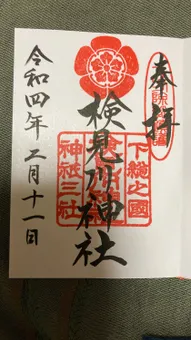 奉拝
検見川神社
下總之國
神祇三社
令和四年二月十一日